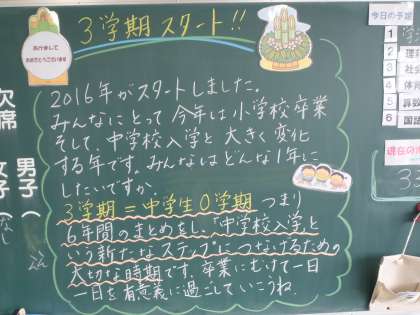 3学期スタート!!
あけまして
おめでとうございます
2016年がスタートしました。
みんなにとって今年は小学校卒業
そして、中学校入学と大きく変化
する年です。みんなはどんな1年に
したいですか。
3学期=中学生0学期 つまり
6年間のまとめをし、"中学校入学"と
いう新たなステップ"につなげるための
大切な時期です。卒業にむけて一日
一日を有意義に過ごしていこうね。
欠席
男子(
女子(なし
今日の予定
1
2 理科
3 社会
4 体育
5 算数
6 国語
現在の
33